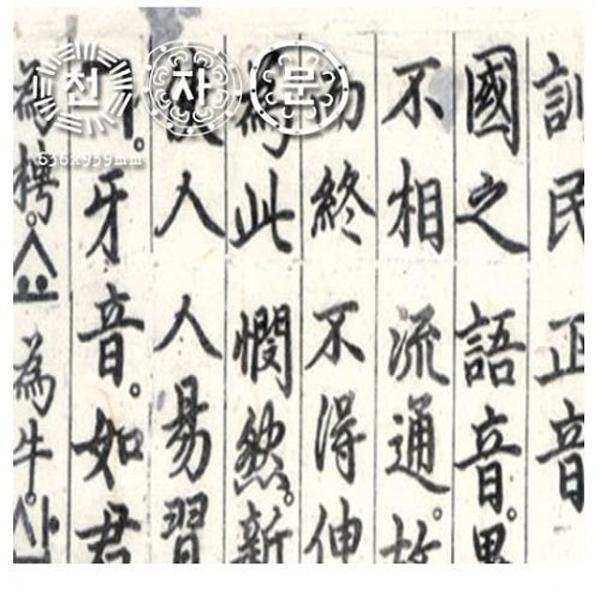 천자문
636x939mm
訓民正音
國之語音。異
不相流通。故
終不得伸
為此憫然。新
人人易習
ㄱ。牙音。如君
為梬。쇼為牛。